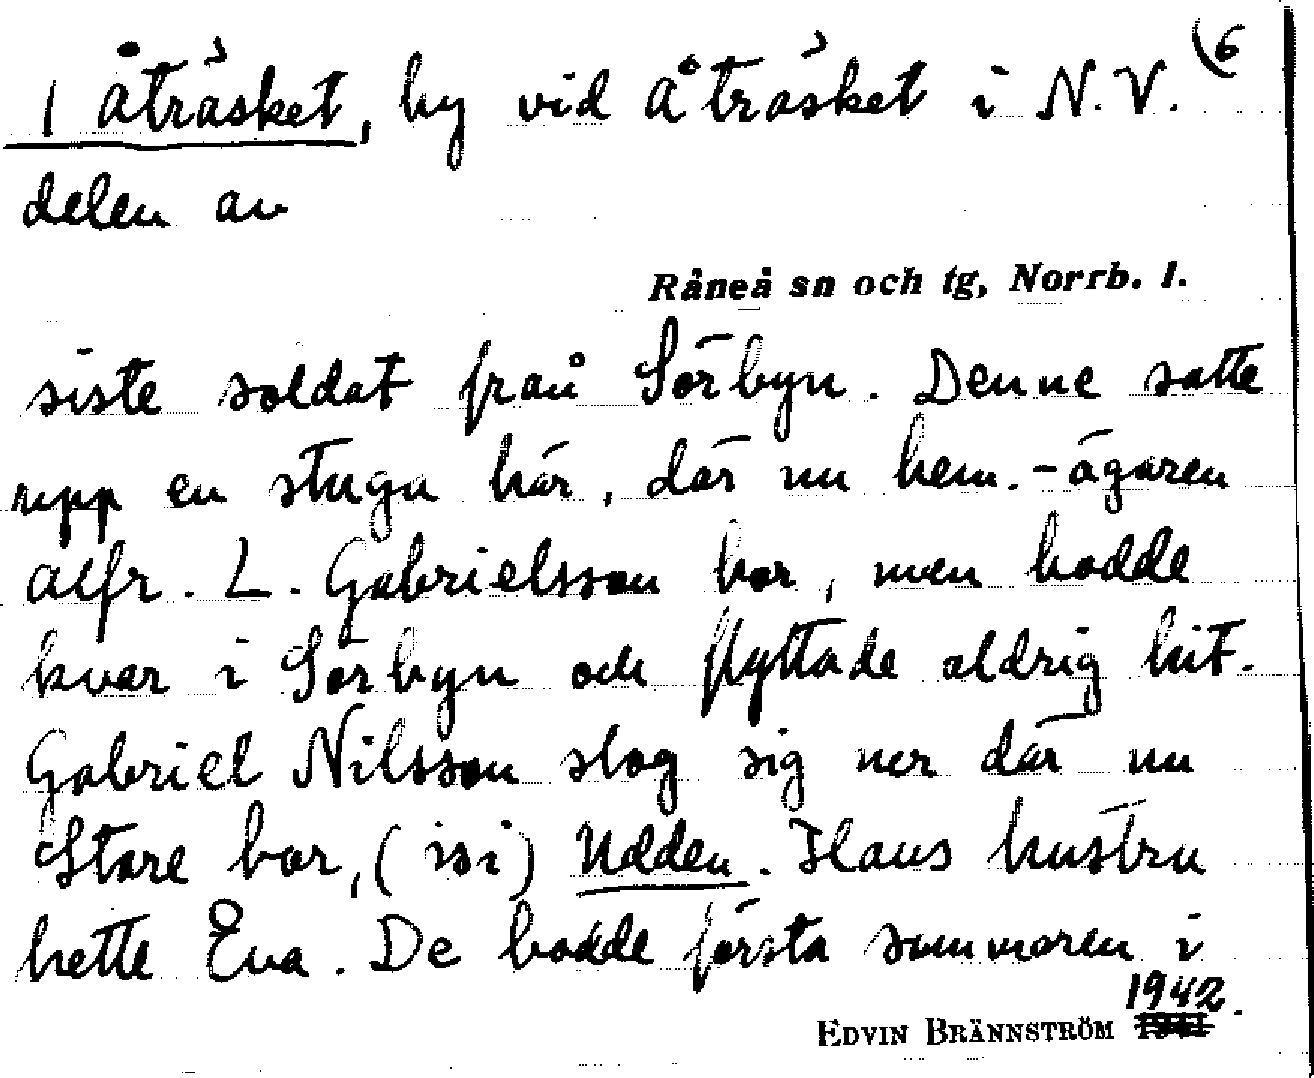 1 Åträsket, by vid Åträsket i N.V. (6
delen av
Råneå sn och tg, Norrb. l.
siste soldat från Sörbyn. Denne satte
upp en stuga här, där nu hem.-ägaren
Alfr. L. Gabrielsson bor, men bodde
kvar i Sörbyn och flyttade aldrig hit.
Gabriel Nilsson slog sig ner där nu
Stare bor, ( isi) Udden. Hans hustru
hette Eva. De bodde första sommaren i
EDVIN BRÄNNSTRÖM 1942.